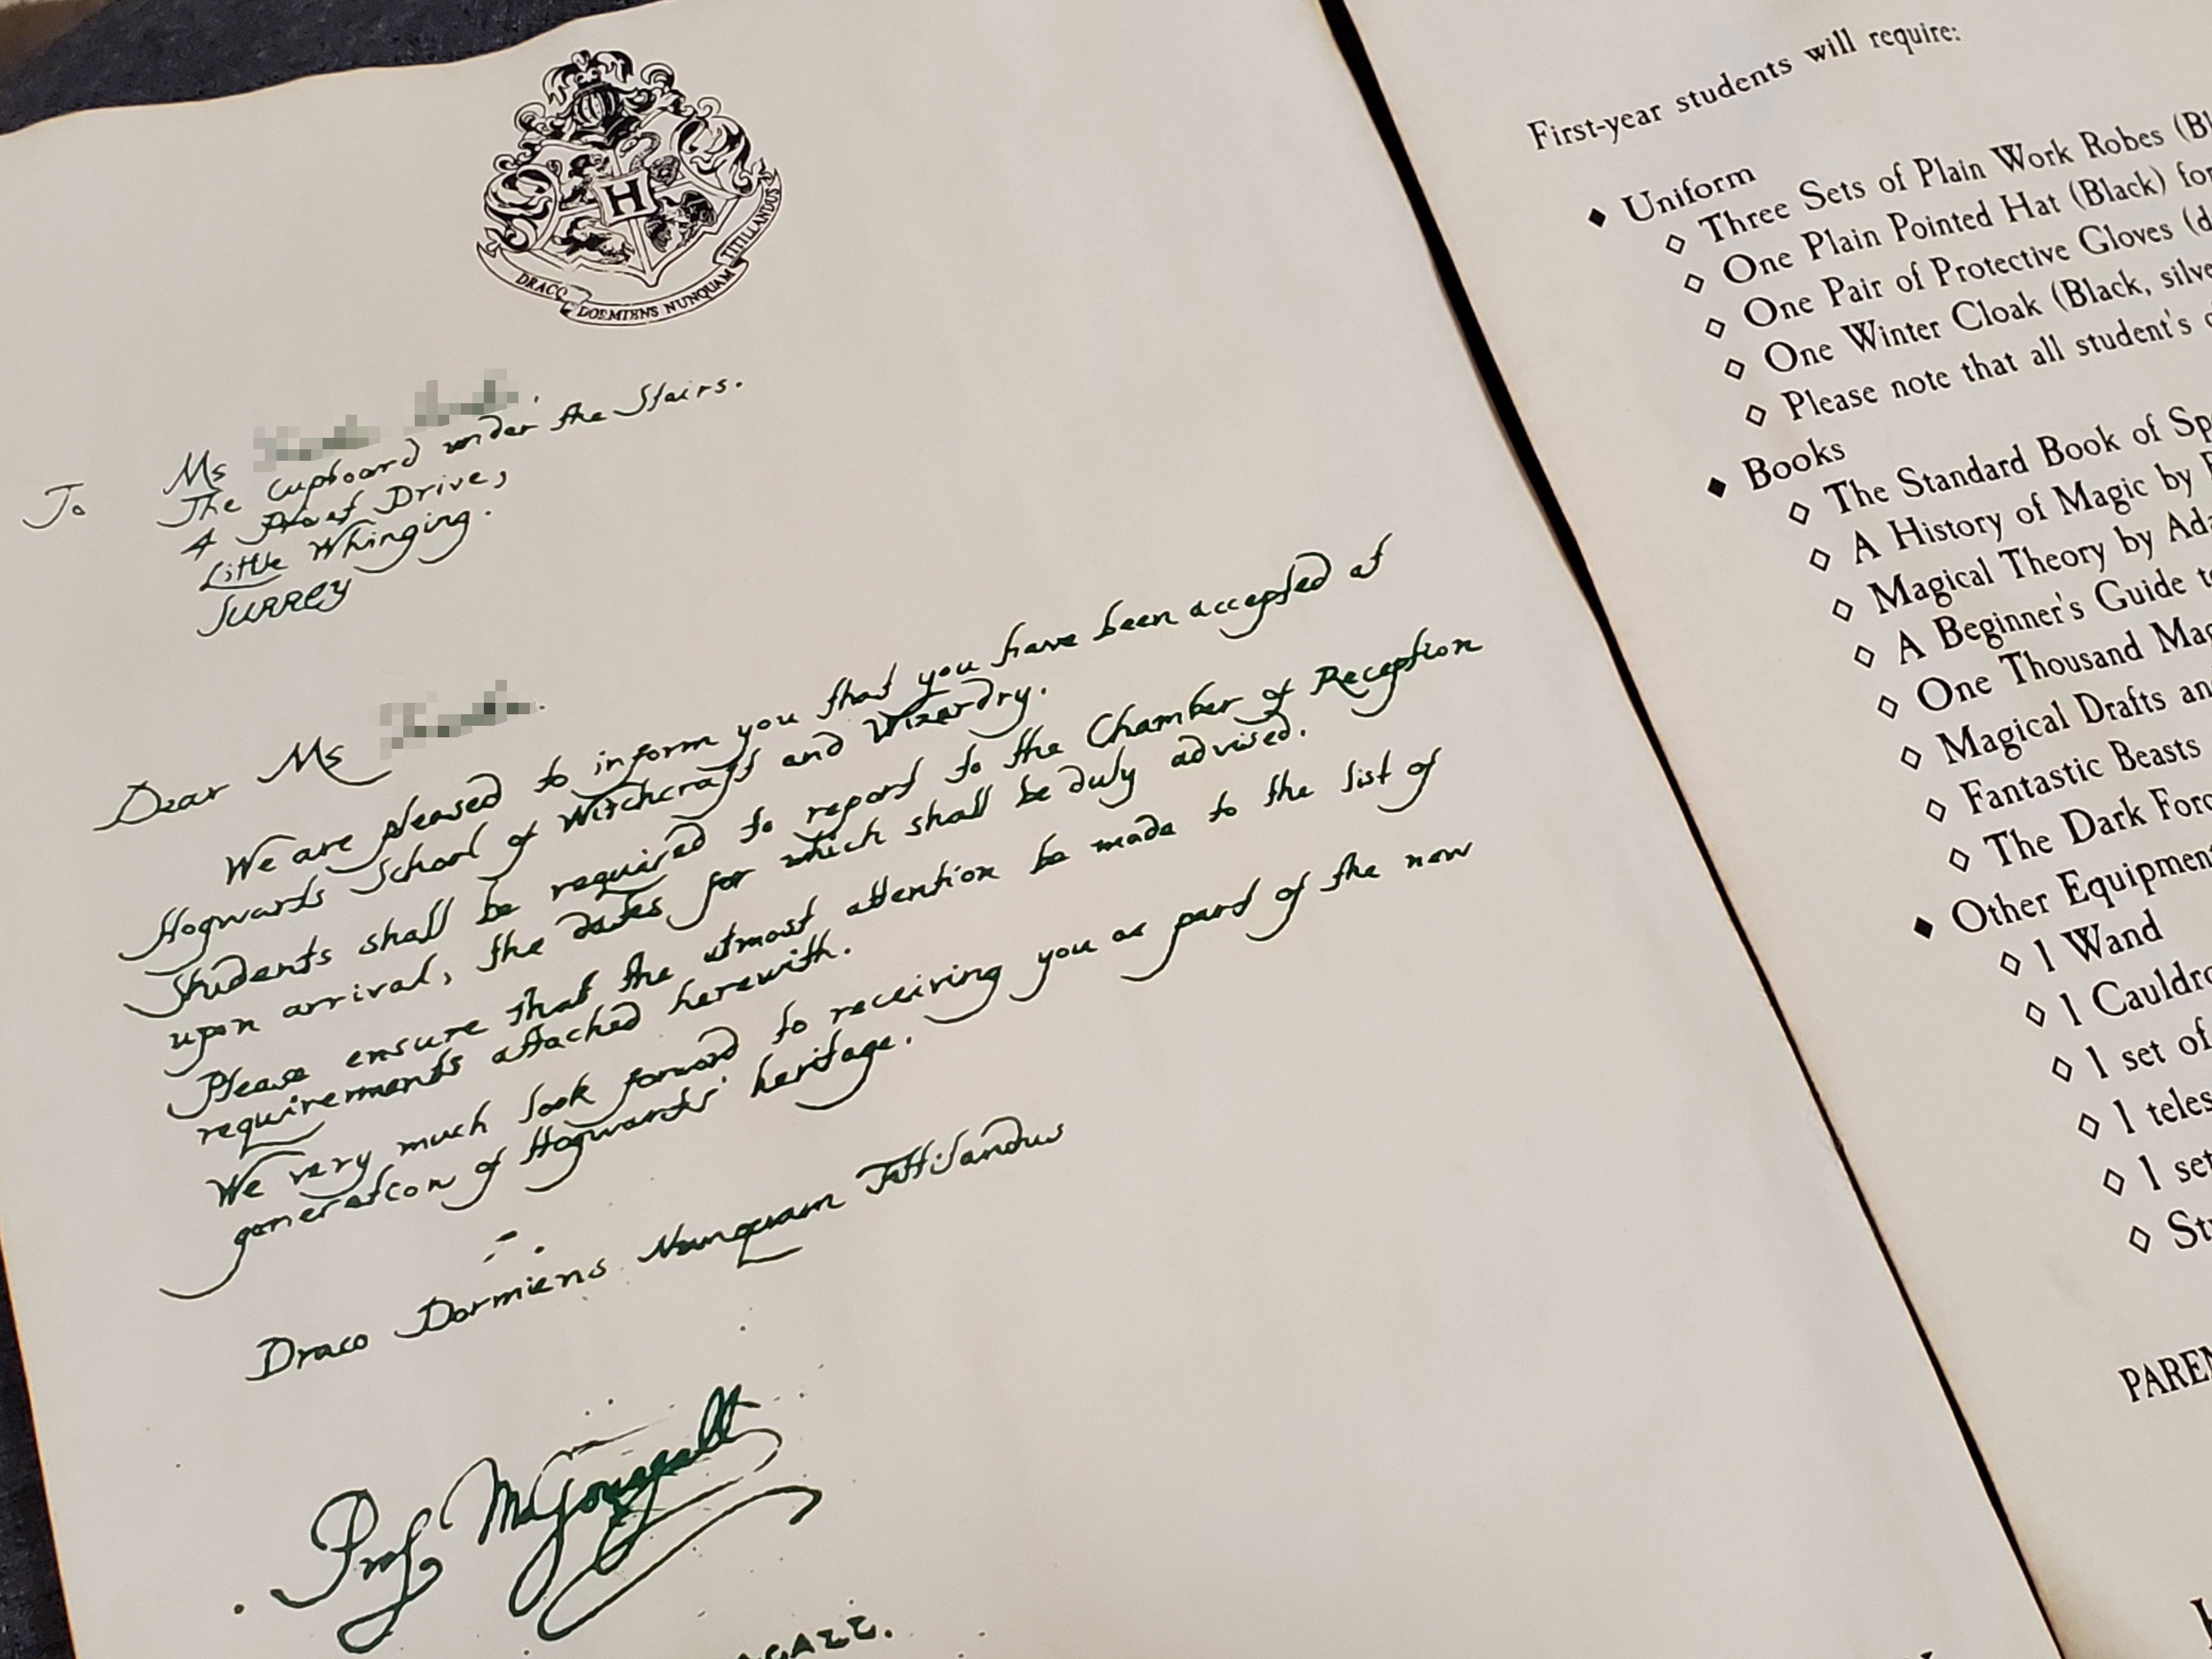 DRACO DORMIENS NUNQUAM TITILLANDUS
H
To
Ms
The Cupboard under the Stairs.
4 Drive,
Little Whinging.
SURREY
Dear Ms
We are pleased to inform you that you have been accepted at
Hogwarts School of Witchcraft and Wizardry.
Students shall be required to report to the Chamber of Reception
upon arrival, the dates for which shall be duly advised.
Please ensure that the utmost attention be made to the list of
requirements attached herewith.
We very much look forward to receiving you as part of the new
generation of Hogwarts' heritage.
Draco Dormiens Nunquam Tittilandus
Prof. McGonagall
First-year students will require:
◆ Uniform
◇ Three Sets of Plain Work Robes
◇ One Plain Pointed Hat (Black) for
◇ One Pair of Protective Gloves
◇ One Winter Cloak (Black,
◇ Please note that all student's
◆ Books
◇ The Standard Book of
◇ A History of Magic by
◇ Magical Theory by
◇ A Beginner's Guide
◇ One Thousand
◇ Magical Drafts
◇ Fantastic Beasts
◇ The Dark
◆ Other
◇ 1 Wand
◇ 1
◇ 1 set of
◇ 1
◇ 1